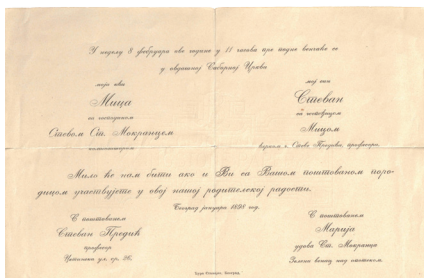 У недељу 8 фебруара ове године у 11 часова пре подне венчаће се
у овдашњој Саборној Цркви
моја кћи
Мица
са господином
Стевом Ст. Мокрањцем
мој син
Стеван
са госпођицом
Мицом
Мило ће нам бити ако и Ви са Вашом поштованом поро-
дицом учествујете у овој нашој родитељској радости.
Београд јануара 1898 год.
С поштовањем
Стеван Предић
професор
С поштовањем
Марија
удова Ст. Мокрањца